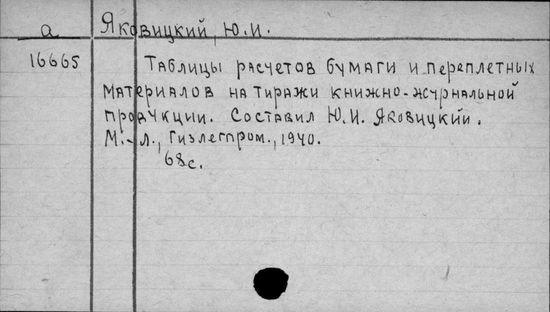 а Яковицкий, Ю.И.
16665 Таблицы расчетов бумаги и переплетных
материалов на тиражи книжно-журнальной
продукции. Составил Ю.И. Яковицкий.
М.-Л., Гизлегпром., 1940.
68с.